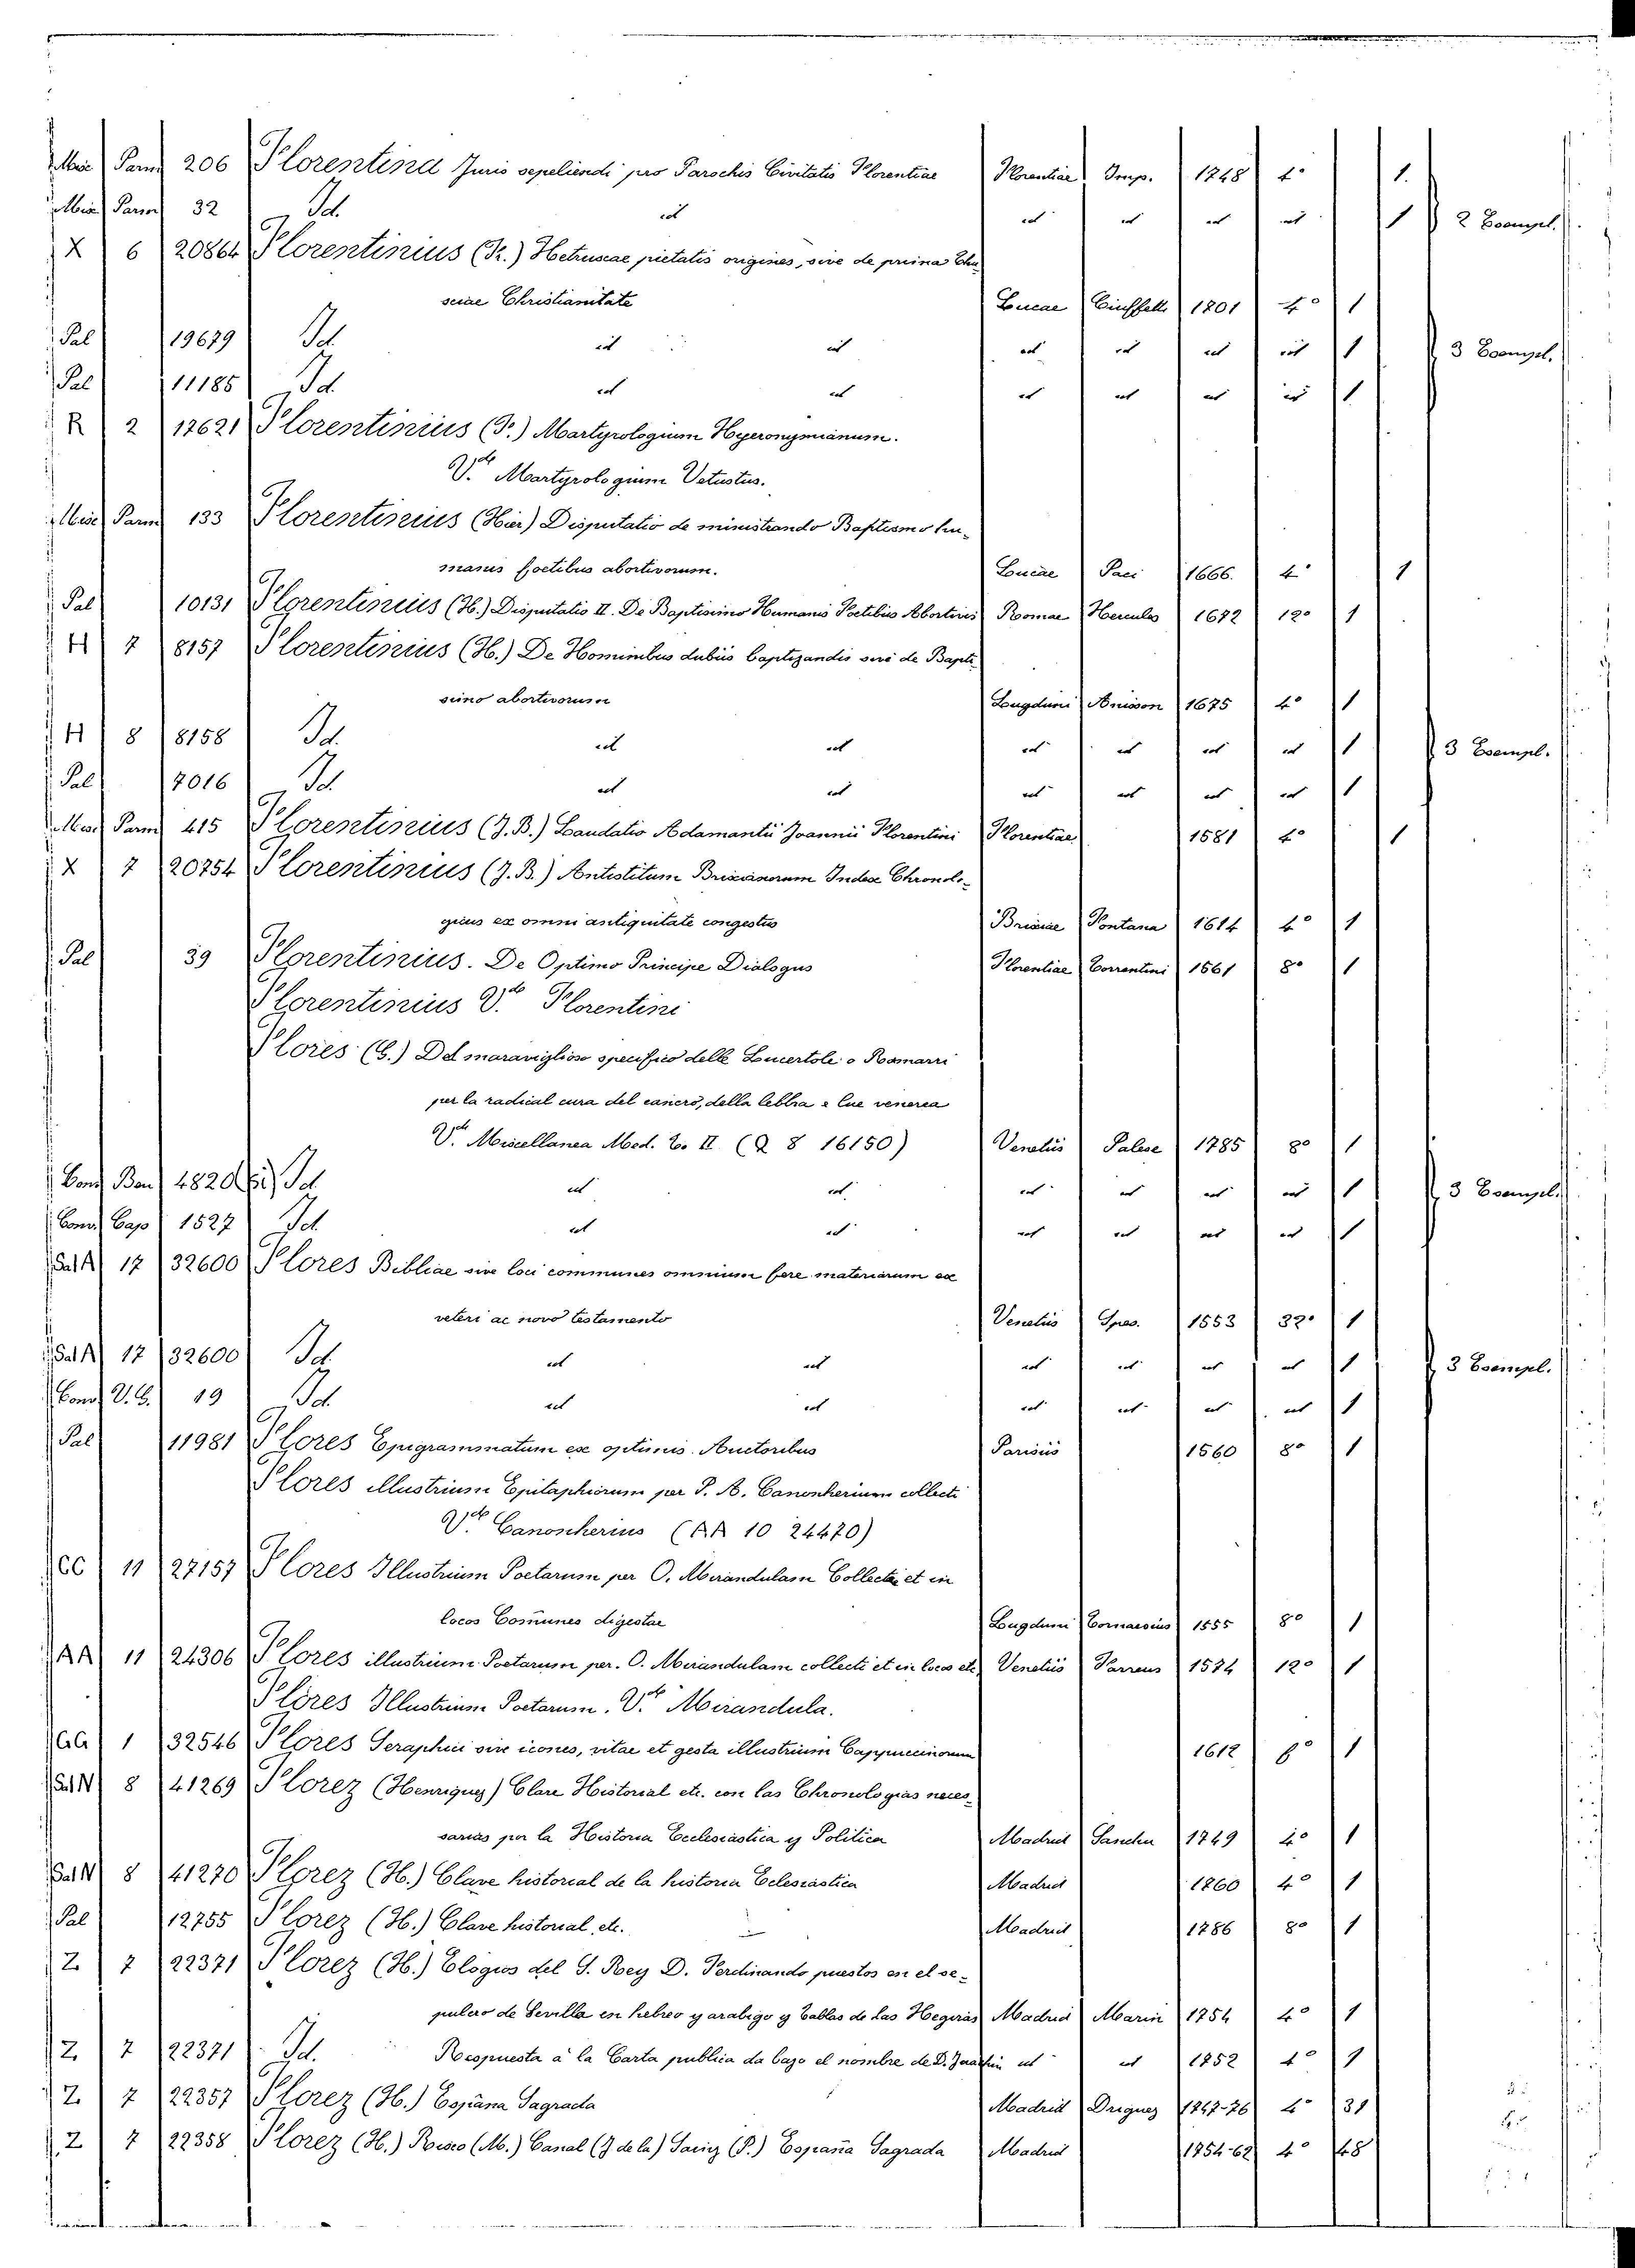 Misc Parm 206 Florentina Juris sepeliendi pro Parochis Civitatis Florentiae Florentiae Imp. 1748 4° 1.
Misc Parm 32 Id. id id id id id 1 2 Esempl.
X 6 20864 Florentinius (F.) Hetruscae pietatis origines, sive de prima Thu
sciae Christianitate Lucae Ciuffetti 1701 4° 1
Pal 19679 Id. id id id id id id 1 3 Esempl.
Pal 11185 Id. id id id id id id 1
R 2 17621 Florentinius (F.) Martyrologium Hyeronymianum.
V.de Martyrologium Vetustus.
Misc Parm 133 Florentinius (Hier) Disputatio de ministrando Baptismo hu-
manis foetibus abortivorum. Lucae Paci 1666. 4° 1
Pal 10131 Florentinius (H.) Disputatio II. De Baptismo Humanis Foetibus Abortivis Romae Hercules 1672 12° 1
H 7 8157 Florentinius (H.) De Hominibus dubiis baptizandis sive de Bapti
smo abortivorum Lugduni Anisson 1675 4° 1
H 8 8158 Id. id id id id id id 1 3 Esempl.
Pal 7016 Id. id id id id id id 1
Misc Parm 415 Florentinius (J. B.) Laudatio Adamantii Joannii Florentini Florentiae 1581 4° 1
X 7 20754 Florentinius (J. B.) Antistitum Brixianorum Index Chronolo-
gicus ex omni antiquitate congestus Brixiae Fontana 1614 4° 1
Pal 39 Florentinius. De Optimo Principe Dialogus Florentiae Torrentini 1561 8° 1
Florentinius V.de Florentini
Flores (G.) Del maraviglioso specifico delle Lucertole o Ramarri
per la radical cura del cancro, della lebbra e lue venerea
V.de Miscellanea Med. To. II (Q 8 16150) Venetiis Palese 1785 8° 1
Cons Ben 4820 Id id id id id id id 1 3 Esempl.
Cons Cap 1527 Id. id id id id id id 1
Sal A 17 32600 Flores Bibliae sive loci communes omnium fere materiarum ex
veteri ac novo testamento Venetiis Spes. 1553 32° 1
Sal A 17 32600 Id. id id id id id id 1 3 Esempl.
Cons V. G. 19 Id. id id id id id id 1
Pal 11981 Flores Epigrammatum ex optimis Auctoribus Parisiis 1560 8° 1
Flores illustrium Epitaphiorum per P. A. Canonherium collecti
V.de Canoncherius (AA 10 24470)
CC 11 27157 Flores Illustrium Poetarum per O. Mirandulam Collectae et in
locos Comunes digestae Lugduni 1555 8° 1
AA 11 24306 Flores illustrium Poetarum per. O. Mirandulam collecti et in locos etc Venetiis 1574 12° 1
Flores Illustrium Poetarum. V.de Mirandula.
GG 1 32546 Flores Seraphici sive icones, vitae et gesta illustrium Cappuccinorum 1612 f° 1
Sal N 8 41269 Florez (Henriquez) Clave Historial etc. con las Chronologias neces-
sarias por la Historia Ecclesiastica y Politica Madrid Sanchu 1749 4° 1
Sal N 8 41270 Florez (H.) Clave historial de la historia Eclesiastica Madrid 1760 4° 1
Pal 12755 Florez (H.) Clave historial, etc. Madrid 1786 8° 1
Z 7 22371 Florez (H.) Elogios del S. Rey D. Ferdinando puestos en el se-
pulcro de Sevilla en hebreo y arabigo y tablas de las Hegeras Madrid Marin 1754 4° 1
Z 7 22371 Id. Respuesta a la Carta publica da bajo el nombre de D. id id 1752 4° 1
Z 7 22357 Florez (H.) España Sagrada Madrid 1747-76 4° 31
Z 7 22358 Florez (H.) Risco (M.) Canal (J de la) Sainz (P.) España Sagrada Madrid 1754-62 4° 48